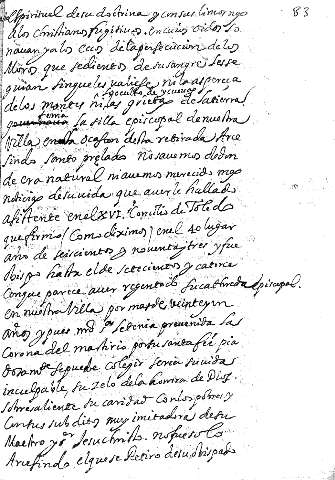 83
el Spiritual de su doctrina y con sus limosnas
a los Christianos fugitivos. En cuios oidos so
nauan ya los ecos de la persecucion de los
Moros que sedientos de su sangre se se
guian sin que les valiese ni la aspereza
de los montes ni las grietas de la tierra
tenia la silla episcopal de nuestra
Villa ocasion desta retirada Arce
sindo santo prelado. No sauemos de don
de era natural ni auemos merecido mas
noticias de su vida que auerle hallado
asistente en el XVI. Concilio de Toledo
que firmó (como diximos) en el 40 lugar
año de seiscientos y nouenta y tres y fue
Obispo hasta el de setecientos y catorce
Conque parece auer regentado su cathreda Episcopal.
en nuestra Villa por mas de veinte y un
años, y pues le tenia preuenida las
Corona del martirio por su santa fee pia
dosamte. se puede colegir seria su vida
inculpable, su zelo de la honrra de Dios.
sobresaliente su caridad con los pobres y
con sus subditos muy imitadora de su
Maestro Jesuchristo. no fue solo
Arcesindo el que se retiro de su obispado